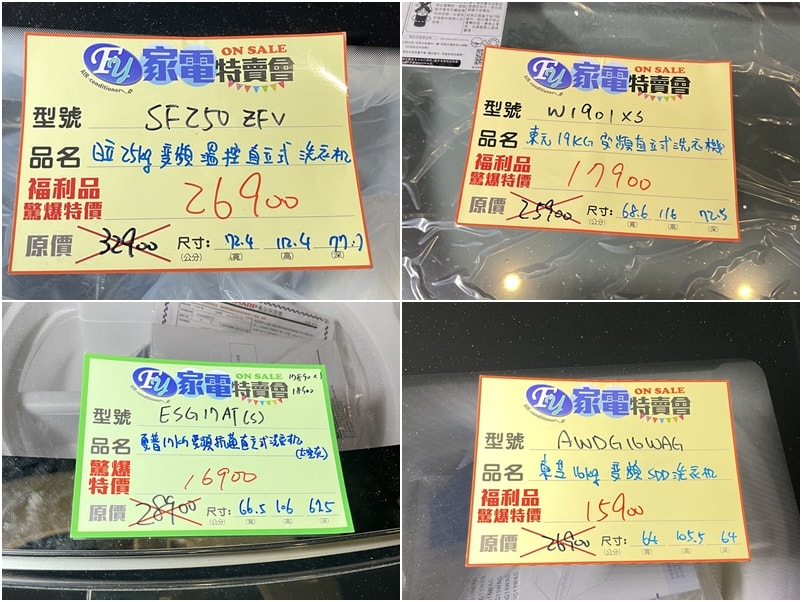 FU 家電特賣會 ON SALE
AIR-conditioner
型號 SF250ZFV
品名 日立25kg變頻溫控直立式洗衣機
福利品
驚爆特價 26900
原價 32900 尺寸: 72.4 112.4 77.7
(公分) (寬) (高) (深)
FU 家電特賣會 ON SALE
AIR-conditioner
型號 W1901XS
品名 東元19KG變頻直立式洗衣機
福利品
驚爆特價 17900
原價 25900 尺寸: 68.6 116 72.5
(公分) (寬) (高) (深)
FU 家電特賣會 ON SALE
AIR-conditioner
18500
型號 ESG17AT(S)
品名 夏普17KG變頻抗菌直立式洗衣機
驚爆
特價 16900
原價 28900 尺寸: 66.5 106 67.5
(公分) (寬) (高) (深)
FU 家電特賣會 ON SALE
AIR-conditioner
型號 AWDG16WAG
品名 東芝16kg變頻SDD洗衣機
福利品
驚爆特價 15900
原價 26900 尺寸: 64 105.5 64
(公分) (寬) (高) (深)